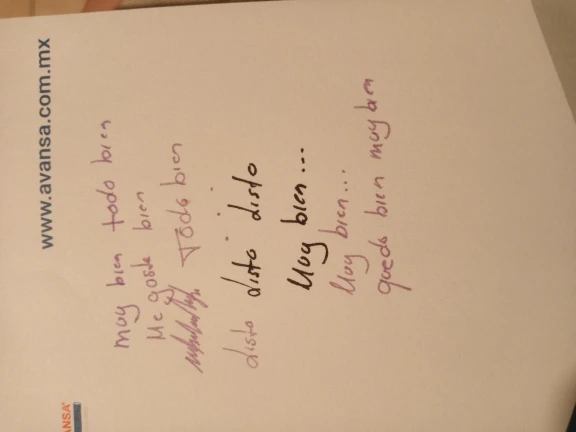 www.avansa.com.mx
muy bien todo bien
Me goste bien
Todo bien
disto disto disto
Muy bien...
Muy bien...
quedo bien muy bien
ANSA